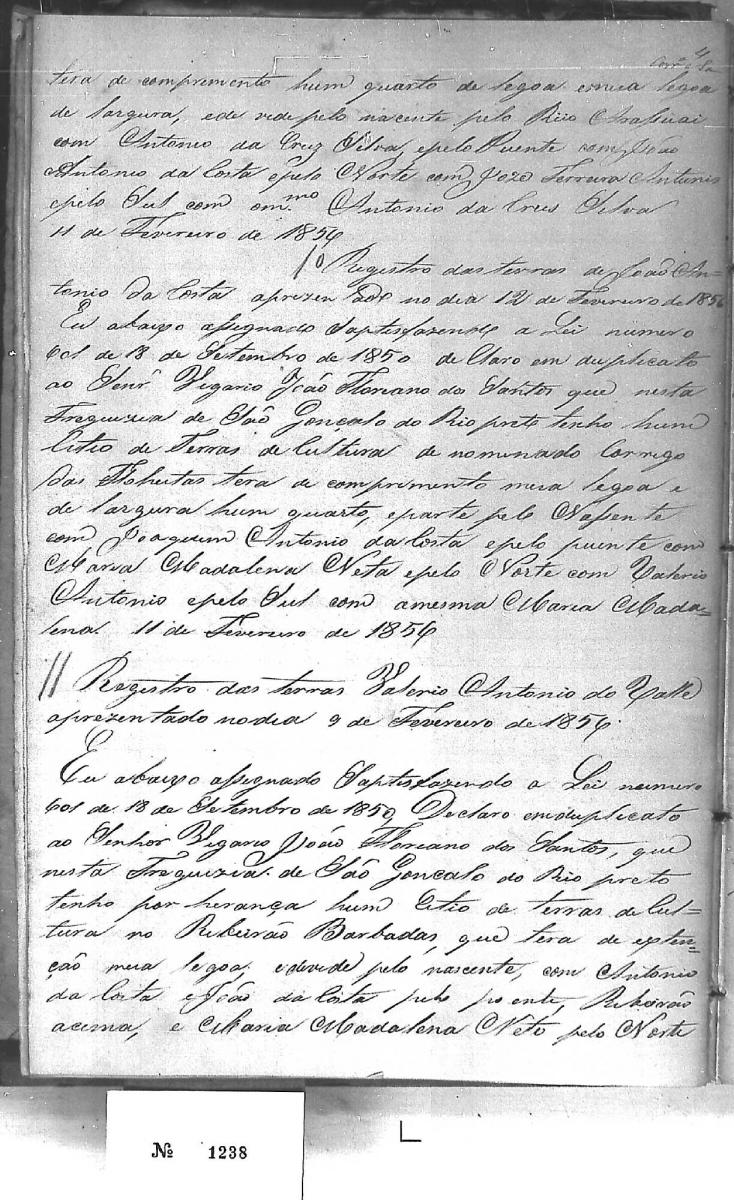 tera de comprimento hum quarto de legoa e meia legoa
de largura, e de vede pelo nascente pelo Rio Arasuai
com Antonio da Cruz Silva, e pelo Puente com João
Antonio da Costa e pelo Norte com Joze Ferrera Antunis
e pelo Sul com o mmo Antonio da Crus Silva
11 de Fevereiro de 1856
10 Registro das terras de João An-
tonio da Costa aprezentado no dia 12 de Fevereiro de 1856
Eu abaixo assignado Saptisfazendo a Lei numero
601 de 18 de Setembro de 1850 de Claro em duplicato
ao Senr Vigario João Floriano dos Santos que nesta
Freguizia de São Gonçalo do Rio preto tenho hum
Citio de Terras de Cultura de nominado Corrigo
das tera de comprimento meia legoa e
de largura hum quarto, e parte pelo Nassente
com Joaquim Antonio da Costa e pelo puente com
Maria Madalena Neta e pelo Norte com Valerio
Antonio e pelo Sul com a mesma Maria Mada=
lena. 11 de Fevereiro de 1856
11 Registro das terras Valerio Antonio do Valle
aprezentado no dia 9 de Fevereiro de 1856.
Eu abaixo assignado Saptisfazendo a Lei numero
601 de 18 de Setembro de 1850, Declaro em duplicato
ao Senhor Vigario João Floreano dos Santos, que
nesta Freguizia de São Gonçalo do Rio preto
tenho por herança hum Citio de terras de Cul=
tura no Ribeirão Barbadas, que tera de exten=
ção meia legoa, e devede pelo nascente, com Antonio
da Costa e João da Costa pelo poente, Ribeirão
acima, e Maria Madalena Neto pelo Norte
№ 1238